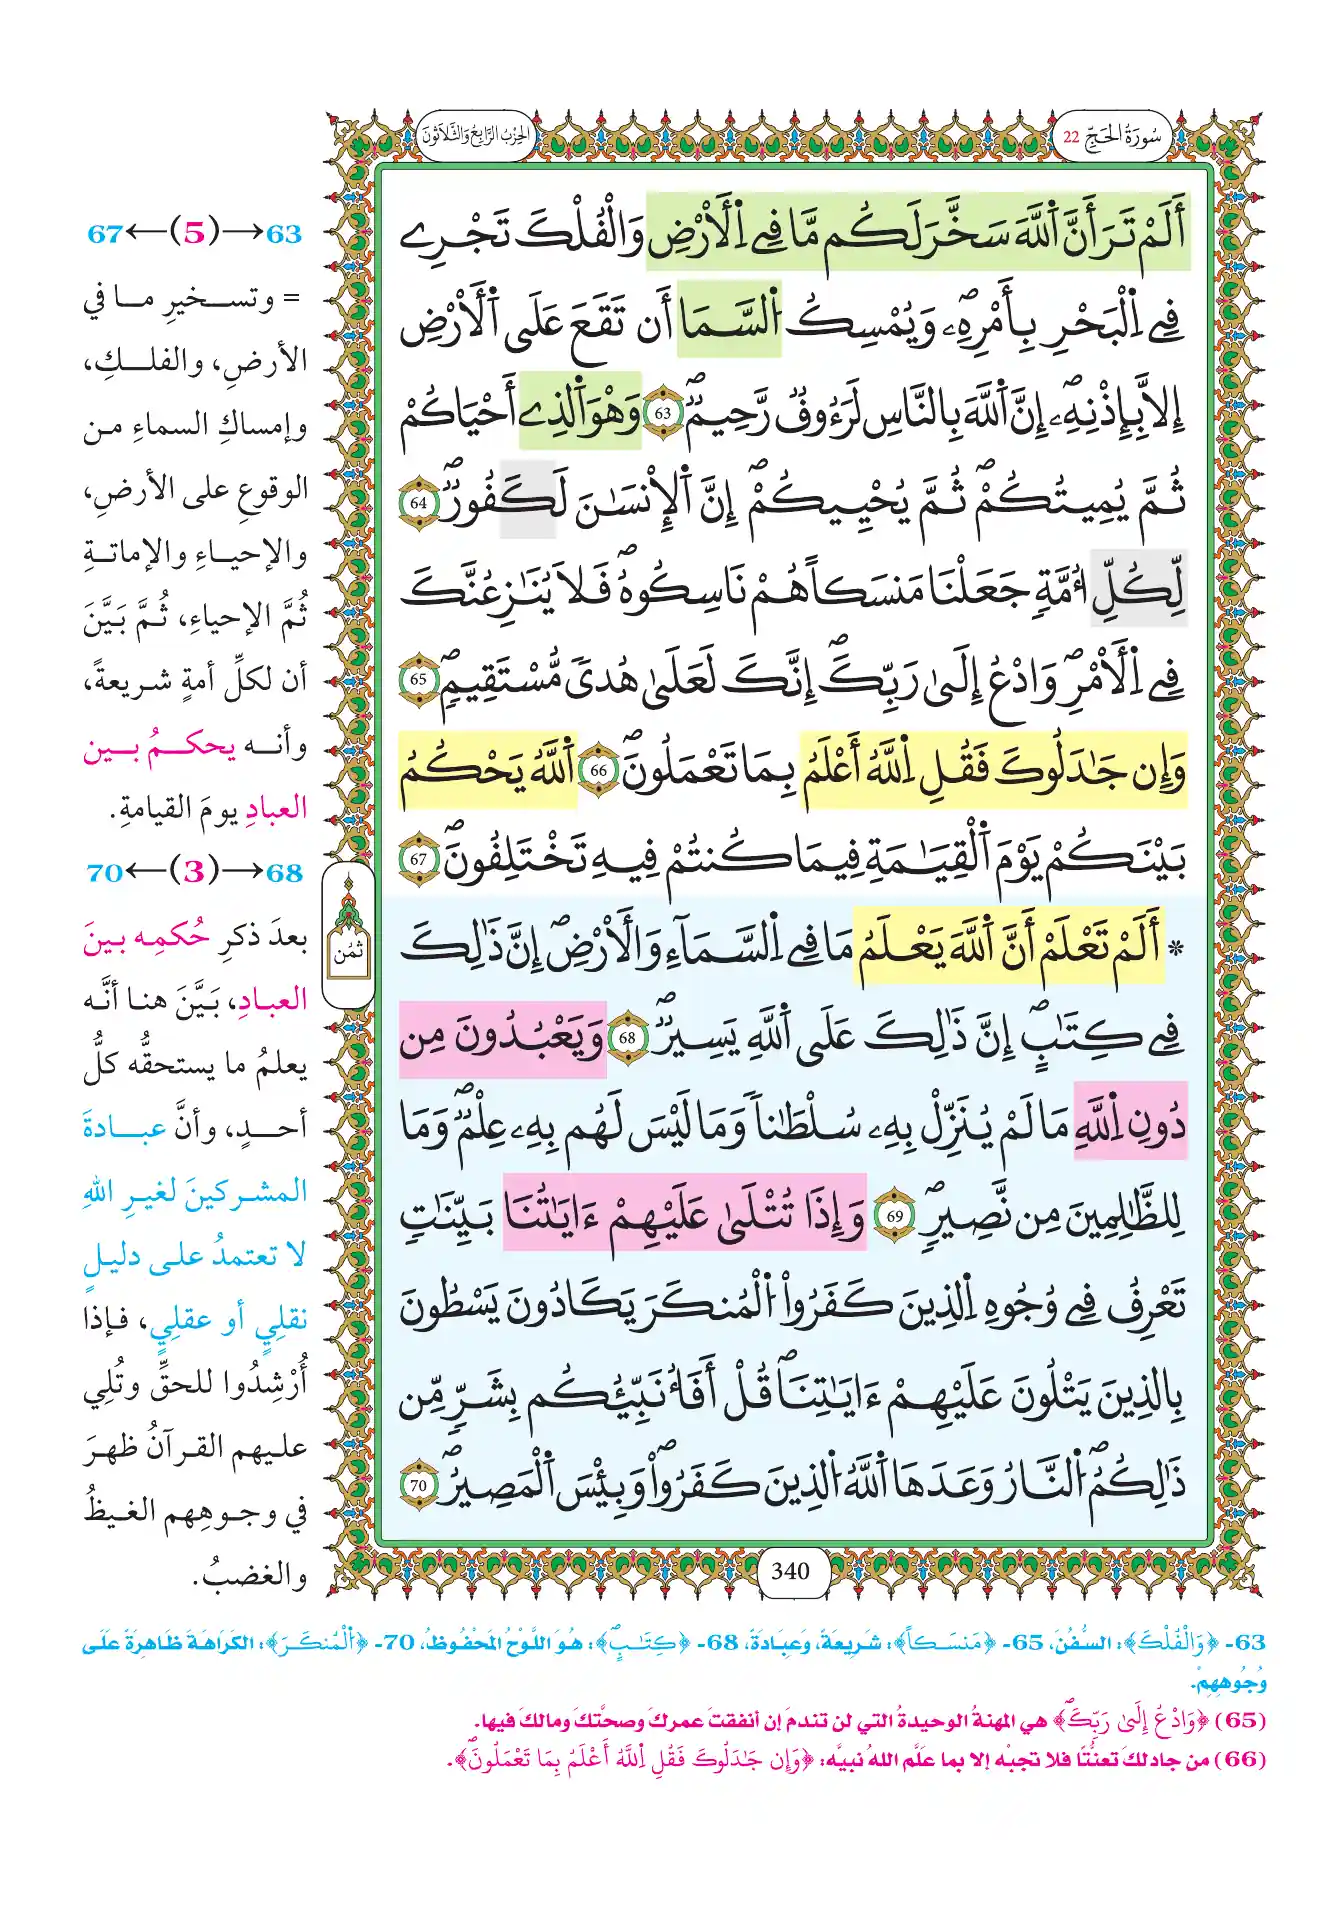 سُورَةُ الحَجِّ 22
الحِزْبُ الرَّابِعُ وَالثَّلَاثُونَ
أَلَمْ تَرَ أَنَّ اَ۬للَّهَ سَخَّرَ لَكُم مَّا فِے اِ۬لَارْضِ وَالْفُلْكَ تَجْرِے
فِے اِ۬لْبَحْرِ بِأَمْرِهِۦۖ وَيُمْسِكُ اُ۬لسَّمَا أَن تَقَعَ عَلَي اَ۬لَارْضِ
إِلَّا بِإِذْنِهِۦٓۖ إِنَّ اَ۬للَّهَ بِالنَّاسِ لَرَءُوفٞ رَّحِيمٞۖ 63 وَهْوَ اَ۬لذِےٓ أَحْيَاكُمْ
ثُمَّ يُمِيتُكُمْۖ ثُمَّ يُحْيِيكُمْۖ إِنَّ اَ۬لِانسَٰنَ لَكَفُورٞۖ 64
لِّكُلِّ أُمَّةٖ جَعَلْنَا مَنسَكاً هُمْ نَاسِكُوهُۖ فَلَا يُنَٰزِعُنَّكَ
فِے اِ۬لَامْرِۖ وَادْعُ إِلَيٰ رَبِّكَۖ إِنَّكَ لَعَلَيٰ هُديٗ مُّسْتَقِيمٖۖ 65
وَإِن جَٰدَلُوكَ فَقُلِ اِ۬للَّهُ أَعْلَمُ بِمَا تَعْمَلُونَۖ 66 اَ۬للَّهُ يَحْكُمُ
بَيْنَكُمْ يَوْمَ اَ۬لْقِيَٰمَةِ فِيمَا كُنتُمْ فِيهِ تَخْتَلِفُونَۖ 67
* أَلَمْ تَعْلَمْ أَنَّ اَ۬للَّهَ يَعْلَمُ مَا فِے اِ۬لسَّمَآءِ وَالَارْضِۖ إِنَّ ذَٰلِكَ
فِے كِتَٰبٍۖ إِنَّ ذَٰلِكَ عَلَي اَ۬للَّهِ يَسِيرٞۖ 68 وَيَعْبُدُونَ مِن
دُونِ اِ۬للَّهِ مَا لَمْ يُنَزِّلْ بِهِۦ سُلْطَٰناٗ وَمَا لَيْسَ لَهُم بِهِۦ عِلْمٞۖ وَمَا
لِلظَّٰلِمِينَ مِن نَّصِيرٖۖ 69 وَإِذَا تُتْلَيٰ عَلَيْهِمْ ءَايَٰتُنَا بَيِّنَٰتٖ
تَعْرِفُ فِے وُجُوهِ اِ۬لذِينَ كَفَرُواْ اُ۬لْمُنكَرَ يَكَادُونَ يَسْطُونَ
بِالذِينَ يَتْلُونَ عَلَيْهِمْ ءَايَٰتِنَاۖ قُلْ أَفَأُنَبِّئُكُم بِشَرّٖ مِّن
ذَٰلِكُمُۖ اُ۬لنَّارُ وَعَدَهَا اَ۬للَّهُ اُ۬لذِينَ كَفَرُواْۖ وَبِيسَ اَ۬لْمَصِيرُۖ 70
ثُمُن
340
63→(5)←67
= وتسخيرِ ما في
الأرضِ، والفلكِ،
وإمساكِ السماءِ من
الوقوعِ على الأرضِ،
والإحياءِ والإماتةِ
ثُمَّ الإحياءِ، ثُمَّ بَيَّنَ
أن لكلِّ أمةٍ شريعةً،
وأنه يحكمُ بين
العبادِ يومَ القيامةِ.
68→(3)←70
بعدَ ذكرِ حُكمِه بينَ
العبادِ، بَيَّنَ هنا أنَّه
يعلمُ ما يستحقُّه كلُّ
أحدٍ، وأنَّ عبادةَ
المشركينَ لغيرِ اللهِ
لا تعتمدُ على دليلٍ
نقلِي أو عقلِي، فإذا
أُرْشِدُوا للحقِّ وتُلِي
عليهم القرآنُ ظهرَ
في وجوهِهم الغيظُ
والغضبُ.
63- ﴿وَالْفُلْكَ﴾: السُّفُنَ، 65- ﴿مَنسَكاً﴾: شَرِيعَةً، وَعِبَادَةً، 68- ﴿كِتَٰبٍۖ﴾: هُوَ اللَّوْحُ المَحْفُوظُ، 70- ﴿اُ۬لْمُنكَرَ﴾: الكَرَاهَةَ ظَاهِرَةً عَلَى
وُجُوهِهِمْ.
(65) ﴿وَادْعُ إِلَيٰ رَبِّكَۖ﴾ هي المهنةُ الوحيدةُ التي لن تندمَ إن أنفقتَ عمركَ وصحَّتكَ ومالكَ فيها.
(66) من جادلكَ تعنُّتًا فلا تجبْه إلا بما علَّم اللهُ نبيَّه: ﴿وَإِن جَٰدَلُوكَ فَقُلِ اِ۬للَّهُ أَعْلَمُ بِمَا تَعْمَلُونَۖ﴾.